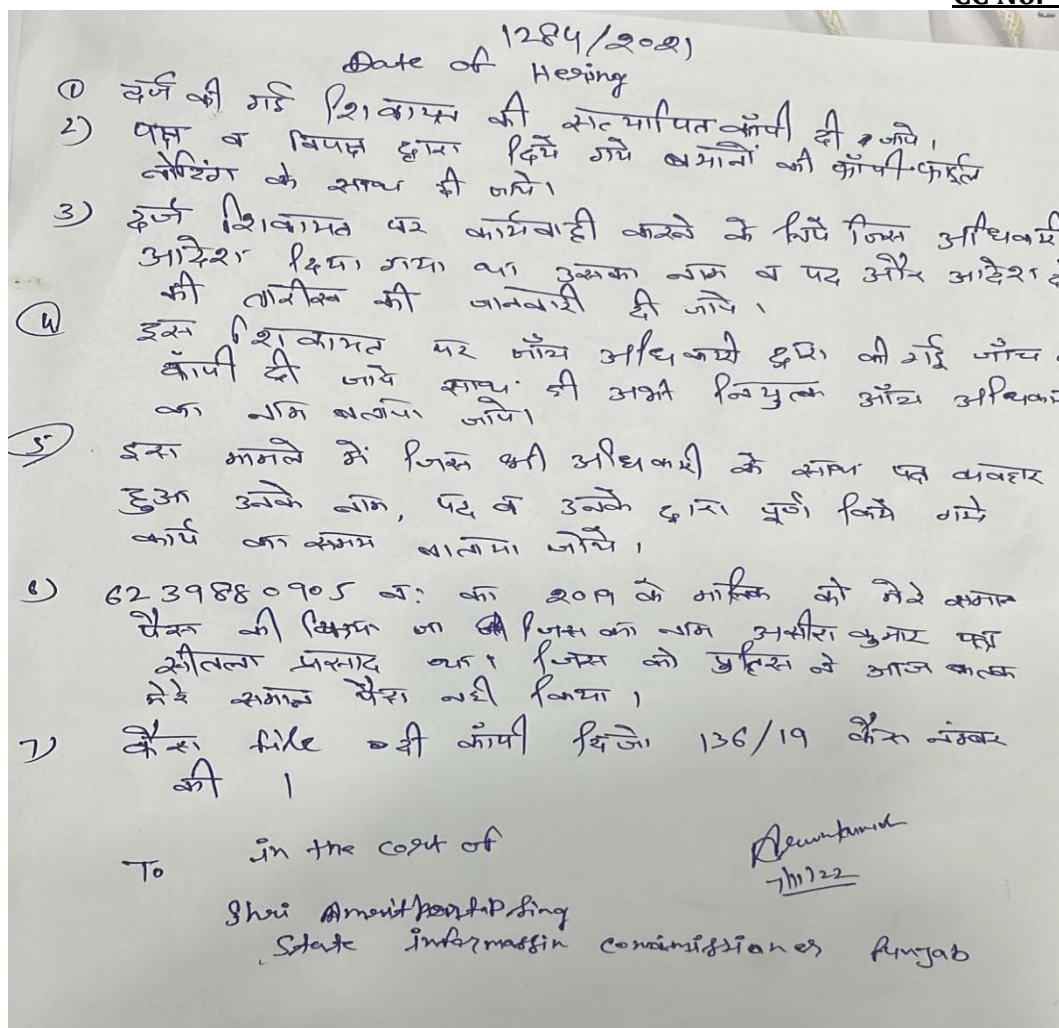 CC No.
1284/2021
Date of Hesing
① दर्ज की गई शिकायत की सत्यापित कॉपी दी जाये।
2) पक्ष व विपक्ष द्वारा दिये गये बयानों की कॉपी फाईल
नोटिंग के साथ दी जाये।
3) दर्ज शिकायत पर कार्यवाही करने के लिये जिस अधिकारी
आदेश दिया गया था उसका नाम व पद और आदेश
की तारीख की जानकारी दी जाये।
④ इस शिकायत पर जाँच अधिकारी द्वारा की गई जाँच
कॉपी दी जाये साथ ही अभी नियुक्त जाँच अधिकारी
का नाम बताया जाये।
⑤ इस मामले में जिस भी अधिकारी के साथ पत्र व्यवहार
हुआ उनके नाम, पद व उनके द्वारा पूर्ण किये गये
कार्य का समय बाताया जाये।
6) 6239880905 न: का 2019 के मालिक को मेरे समान
पैस की जिस का नाम कुमार
सीतला प्रसाद था। जिस को पुलिस ने आज तक
मेरे समान पैस नही किया।
7) कैस file की कॉपी दिजे 136/19 कैस नंम्बर
की।
To in the cort of
7/11/22
Shri Amritpartap Sing
State informassin commissioner Punjab